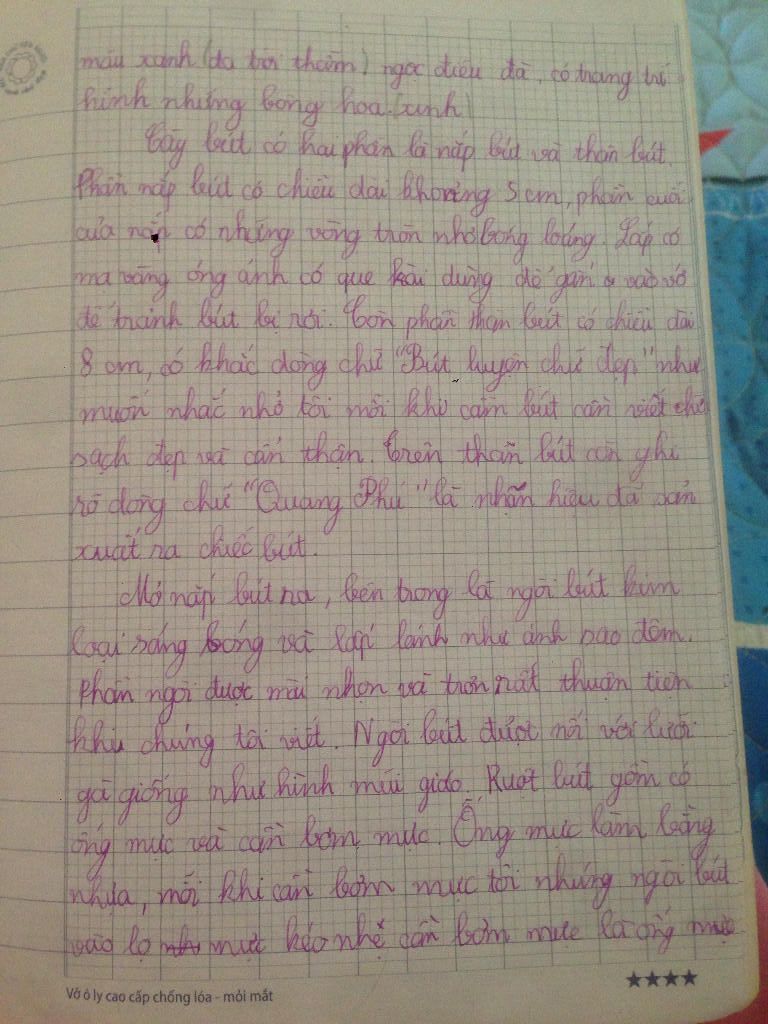 màu xanh (da trời thẫm) ngọc điêu đà, có trang trí
hình những bông hoa.(xinh)
Cây bút có hai phần là nắp bút và thân bút.
Phần nắp bút có chiều dài khoảng 5 cm, phần cuối
của nắp có những vòng tròn nhỏ bóng loáng. Lắp có
mạ vàng óng ánh có que cài dùng để gắn vào vở
để tránh bút bị rơi. Còn phần thân bút có chiều dài
8 cm, có khắc dòng chữ "Bút luyện chữ đẹp" như
muốn nhắc nhở tôi mỗi khi cầm bút cần viết chữ
sạch đẹp và cẩn thận. Trên thân bút còn ghi
rõ dòng chữ "Quang Phú" là nhãn hiệu đã sản
xuất ra chiếc bút.
Mở nắp bút ra, bên trong là ngòi bút kim
loại sáng bóng và lấp lánh như ánh sao đêm.
Phần ngòi được mài nhọn và trơn rất thuận tiện
khi chúng tôi viết. Ngòi bút được nối với lưỡi
gà giống như hình mũi giáo. Ruột bút gồm có
ống mực và cần bơm mực. Ống mực làm bằng
nhựa, mỗi khi cần bơm mực tôi nhúng ngòi bút
vào lọ mực kéo nhẹ cần bơm mực là ống mực
Vở ô ly cao cấp chống lóa - mỏi mắt
★★★★